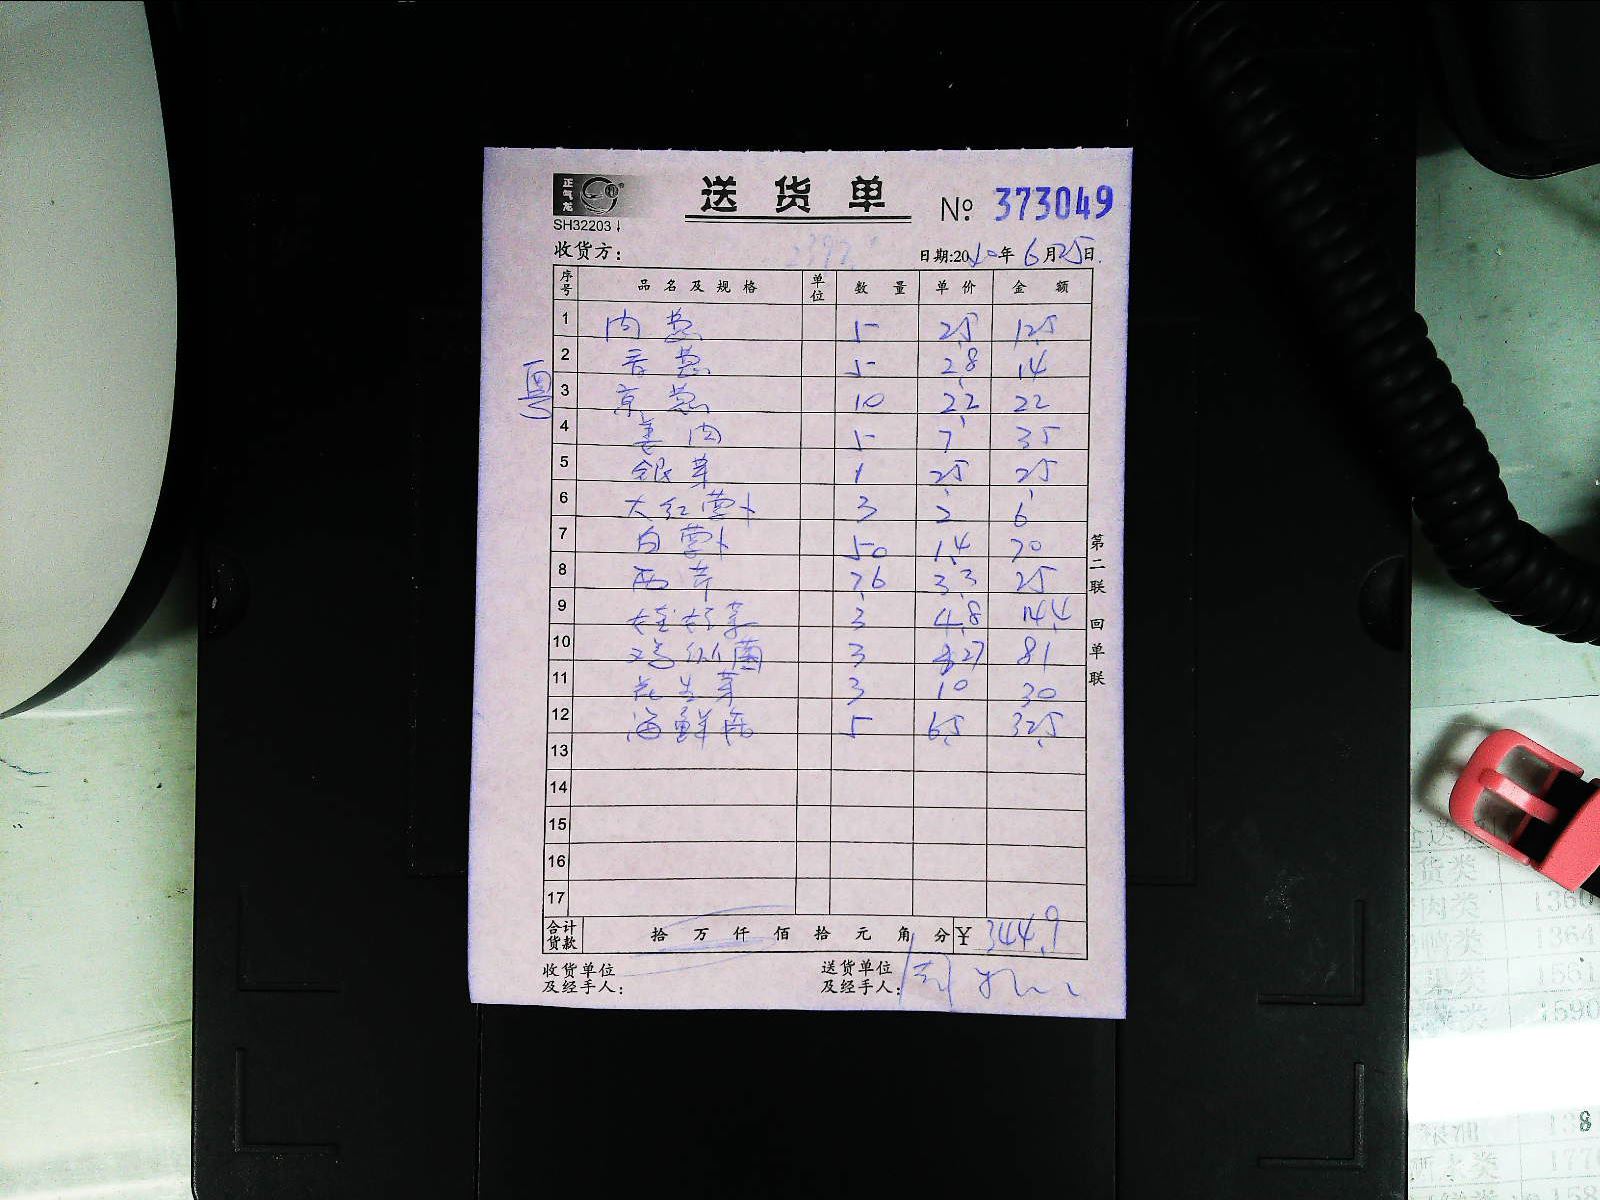 正气龙
SH32203
送货单
№ 373049
收货方：
日期:2010年6月25日
序号 品名及规格 单位 数量 单价 金额
1 肉葱 5 2.5 12.5
2 香葱 5 2.8 14
3 京葱 10 2.2 22
4 姜肉 5 7 35
5 银芽 1 25 25
6 大红萝卜 3 2 6
7 白萝卜 50 1.4 70
8 西芹 7.6 3.3 25
9 娃娃菜 3 4.8 14.4
10 鸡枞菌 3 27 81
11 花生芽 3 10 30
12 海鲜菇 5 6.5 32.5
13
14
15
16
17
粤
第二联 回单联
合计货款 拾 万 仟 佰 拾 元 角 分 ¥ 344.9
收货单位及经手人：
送货单位及经手人：
货类
肉类